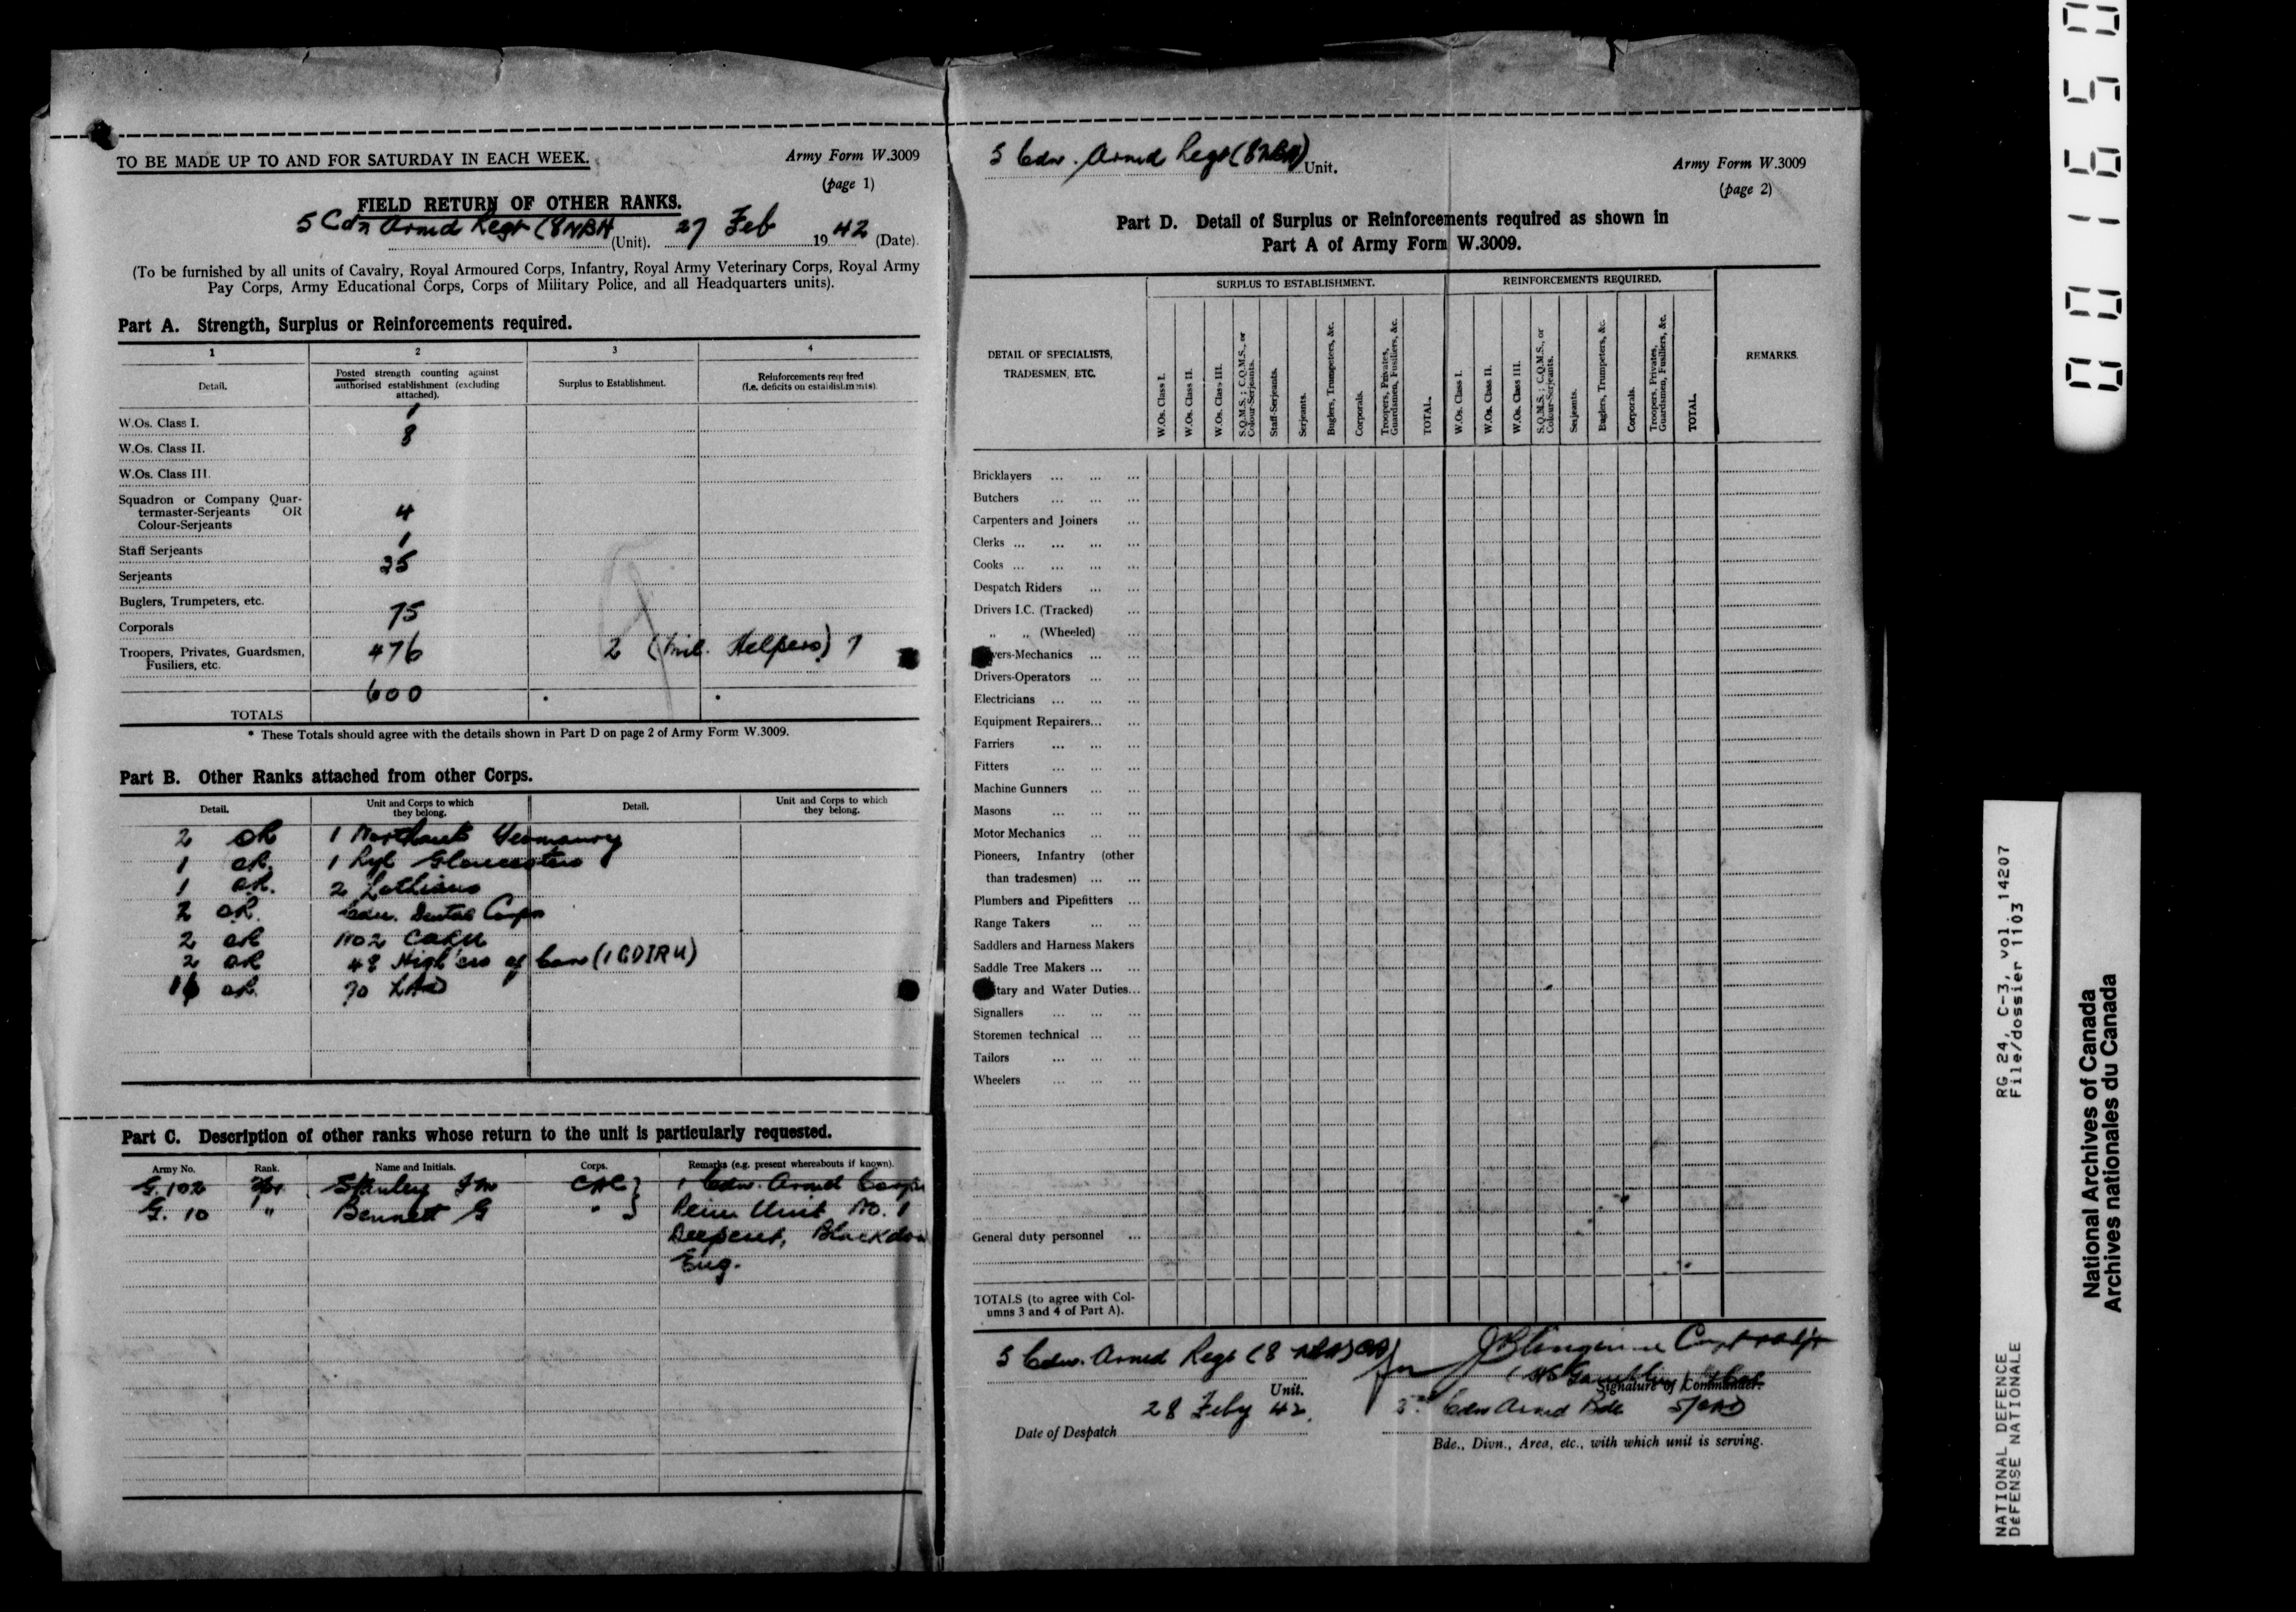 TO BE MADE UP TO AND FOR SATURDAY IN EACH WEEK.
Army Form W.3009
(page 1)
FIELD RETURN OF OTHER RANKS.
5 Cdn Armd Regt (8NBH (Unit). 27 Feb 1942 (Date).
(To be furnished by all units of Cavalry, Royal Armoured Corps, Infantry, Royal Army Veterinary Corps, Royal Army
Pay Corps, Army Educational Corps, Corps of Military Police, and all Headquarters units).
Part A. Strength, Surplus or Reinforcements required.
1 2 3 4
Detail.
Posted strength counting against
authorised establishment (excluding
attached).
Surplus to Establishment.
Reinforcements required
(i.e. deficits on establishments).
W.Os. Class I. 1
W.Os. Class II. 8
W.Os. Class III.
Squadron or Company Quar-
termaster-Serjeants OR
Colour-Serjeants 4
Staff Serjeants 1
Serjeants 35
Buglers, Trumpeters, etc.
Corporals 75
Troopers, Privates, Guardsmen,
Fusiliers, etc. 476 2 (Mil. Helpers) 7
TOTALS 600
* These Totals should agree with the details shown in Part D on page 2 of Army Form W.3009.
Part B. Other Ranks attached from other Corps.
Detail.
Unit and Corps to which
they belong.
Detail.
Unit and Corps to which
they belong.
2 OR 1 Northants Yeomanry
1 OR. 1 Ryl Gloucesters
1 OR. 2 Lothians
2 OR. Cdn. Dental Corps
2 OR 1102 CACRU
2 OR 48 High'ers of Can (1 CDIRU)
16 OR. 70 LAD
Part C. Description of other ranks whose return to the unit is particularly requested.
Army No. Rank. Name and Initials. Corps. Remarks (e.g. present whereabouts if known).
G. 102 Tpr Stanley FM CAC } 1 Cdn. Armd Corps
G. 10 " Bennett G " } Rein Unit No. 1
Deepcut, Blackdown
Eng.
5 Cdn. Armd Regt (8NBH) Unit.
Army Form W.3009
(page 2)
Part D. Detail of Surplus or Reinforcements required as shown in
Part A of Army Form W.3009.
DETAIL OF SPECIALISTS,
TRADESMEN, ETC.
SURPLUS TO ESTABLISHMENT.
W.Os. Class I.
W.Os. Class II.
W.Os. Class III.
S.Q.M.S.; C.Q.M.S., or
Colour-Serjeants.
Staff-Serjeants.
Serjeants.
Buglers, Trumpeters, &c.
Corporals.
Troopers, Privates,
Guardsmen, Fusiliers, &c.
TOTAL.
REINFORCEMENTS REQUIRED.
W.Os. Class I.
W.Os. Class II.
W.Os. Class III.
S.Q.M.S.; C.Q.M.S., or
Colour-Serjeants.
Serjeants.
Buglers, Trumpeters, &c.
Corporals.
Troopers, Privates,
Guardsmen, Fusiliers, &c.
TOTAL.
REMARKS.
Bricklayers ... ... ...
Butchers ... ... ...
Carpenters and Joiners ...
Clerks ... ... ... ...
Cooks ... ... ... ...
Despatch Riders ... ...
Drivers I.C. (Tracked) ...
,, ,, (Wheeled) ...
vers-Mechanics ... ...
Drivers-Operators ... ...
Electricians ... ... ...
Equipment Repairers... ...
Farriers ... ... ...
Fitters ... ... ...
Machine Gunners ... ...
Masons ... ... ...
Motor Mechanics ... ...
Pioneers, Infantry (other
than tradesmen) ... ...
Plumbers and Pipefitters ...
Range Takers ... ...
Saddlers and Harness Makers
Saddle Tree Makers ... ...
itary and Water Duties...
Signallers ... ... ...
Storemen technical ... ...
Tailors ... ... ...
Wheelers ... ... ...
General duty personnel ...
TOTALS (to agree with Col-
umns 3 and 4 of Part A).
5 Cdn. Armd Regt (8 NBH) CA Unit.
for Capt
Signature of Commander.
28 Feby 42.
Date of Despatch
2nd Cdn Armd Bde 5/CAD
Bde., Divn., Area, etc., with which unit is serving.
001650
NATIONAL DEFENCE
DéFENSE NATIONALE
RG 24, C-3, vol. 14207
File/dossier 1103
National Archives of Canada
Archives nationales du Canada